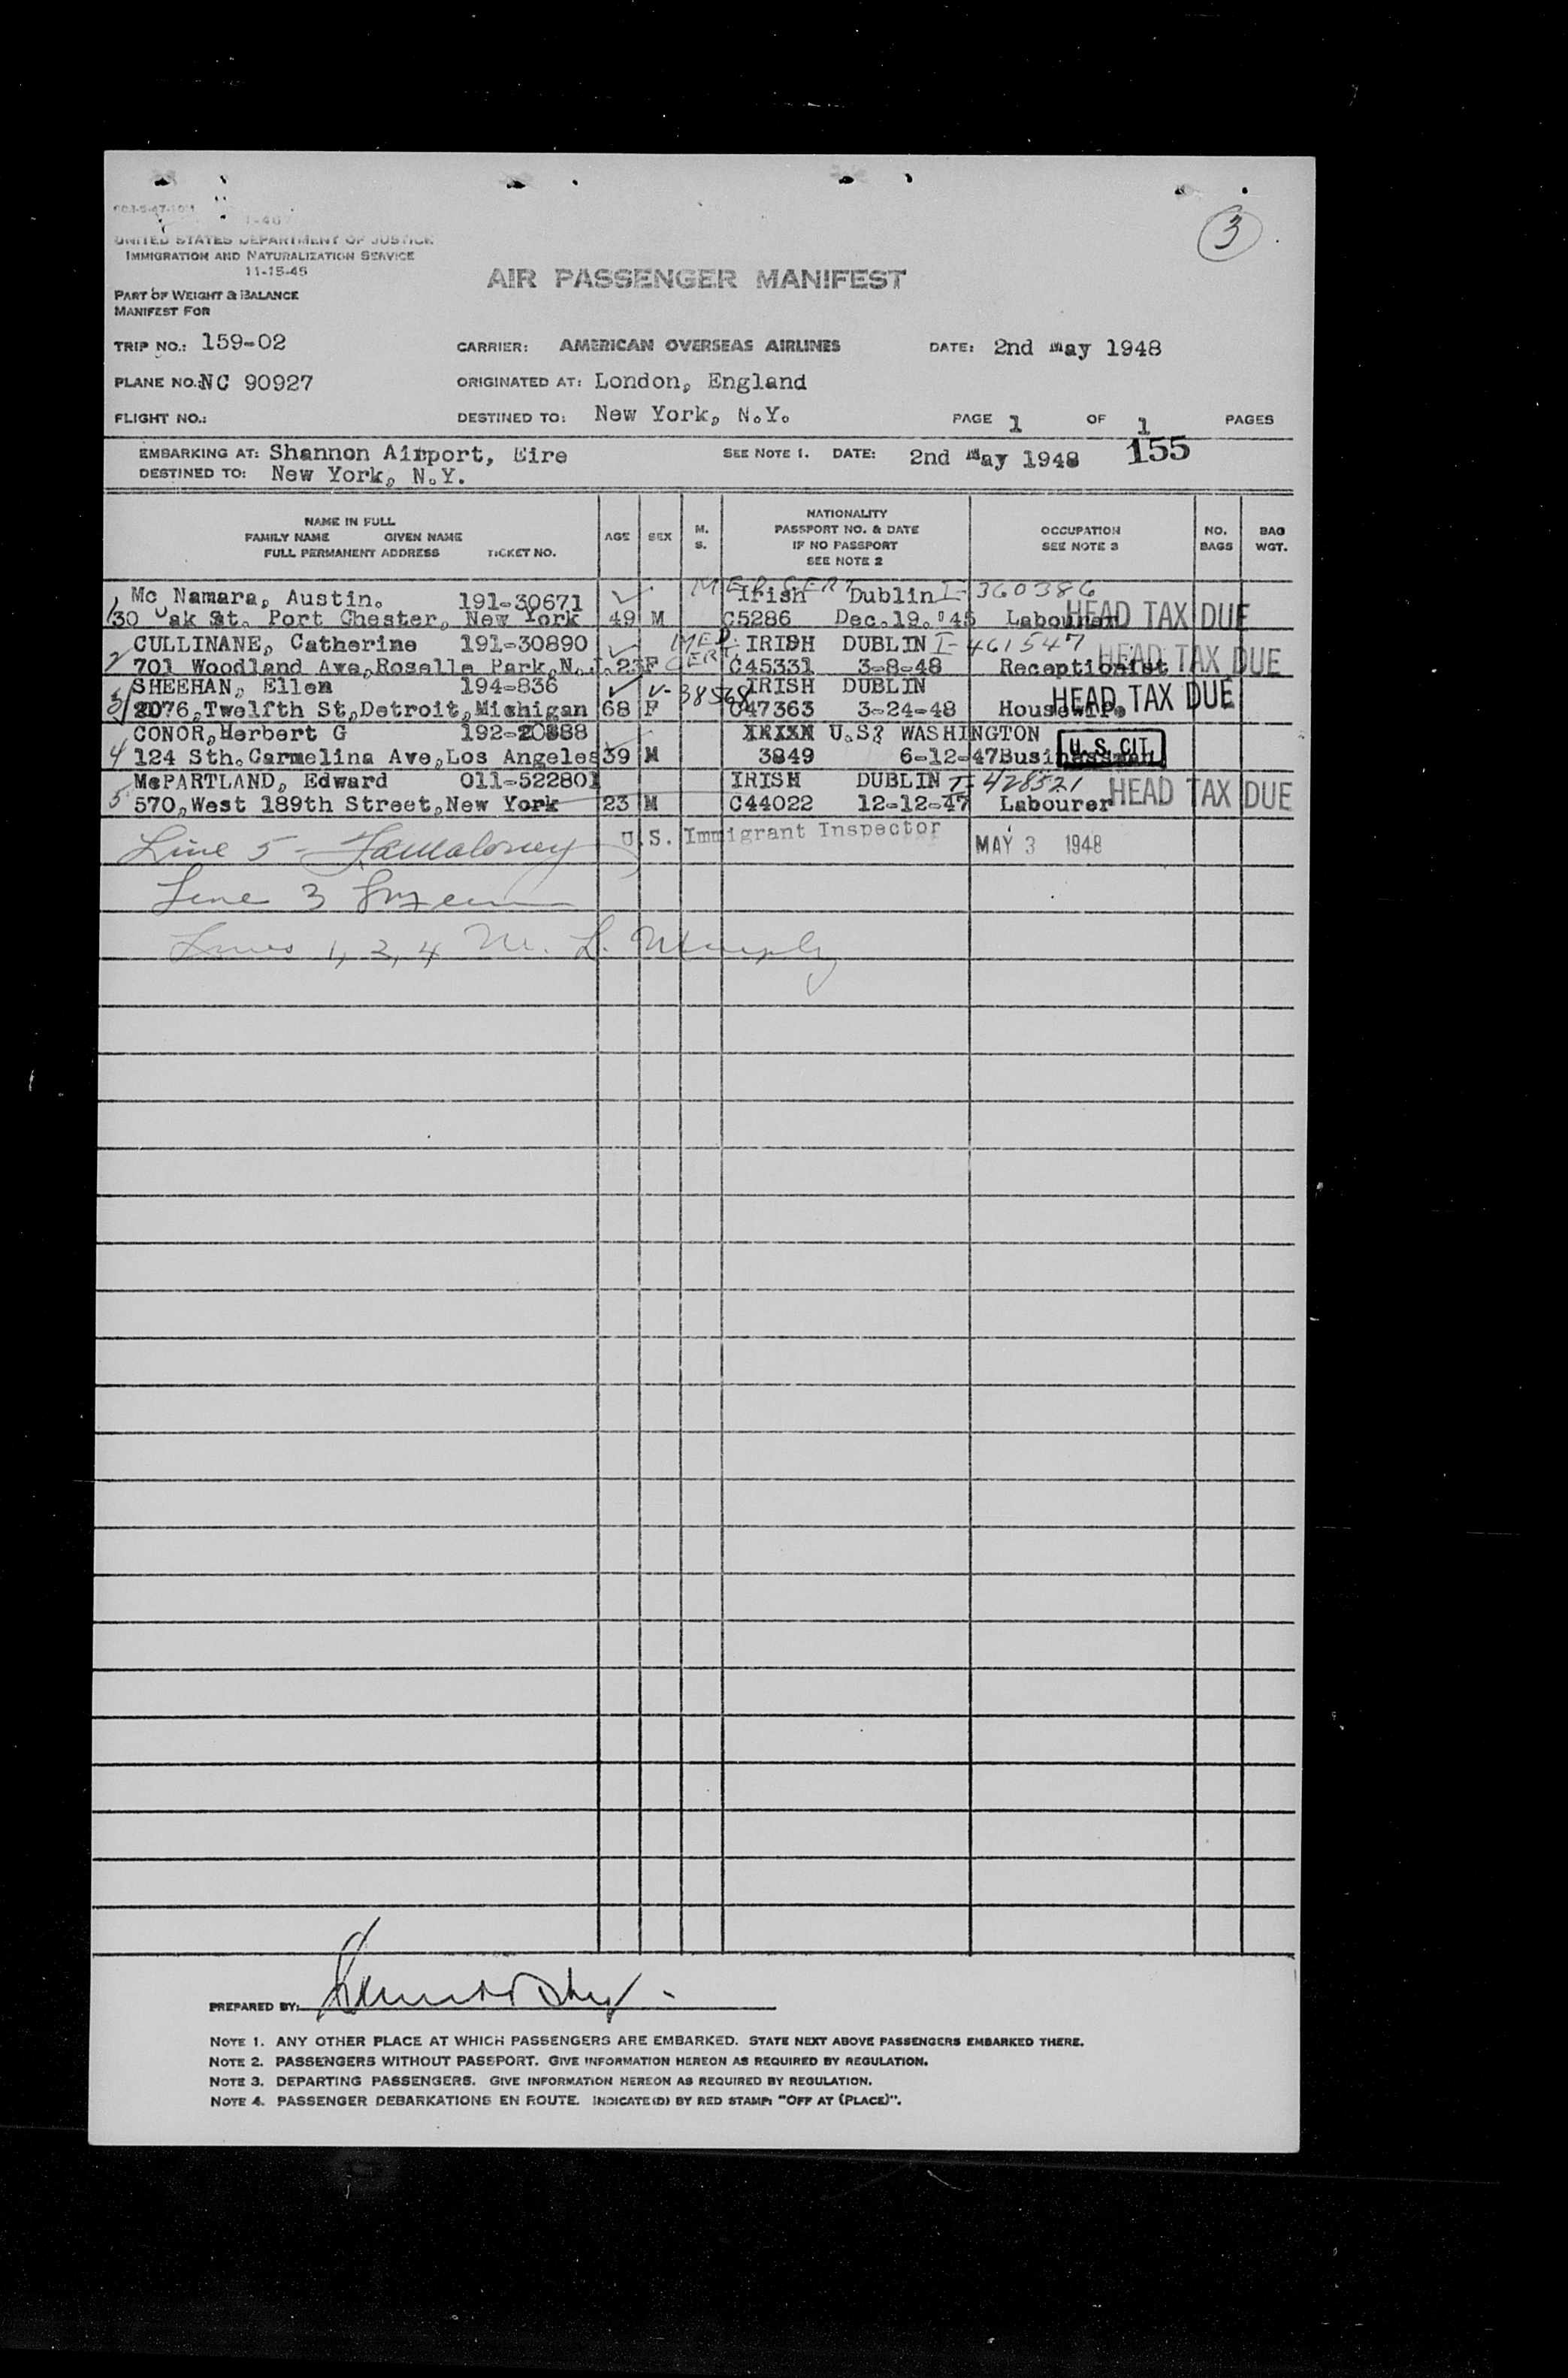 3
UNITED STATES DEPARTMENT OF JUSTICE
IMMIGRATION AND NATURALIZATION SERVICE
11-15-45
AIR PASSENGER MANIFEST
PART OF WEIGHT & BALANCE
MANIFEST FOR
TRIP NO.: 159-02 CARRIER: AMERICAN OVERSEAS AIRLINES DATE: 2nd may 1948
PLANE NO.: NC 90927 ORIGINATED AT: London, England
FLIGHT NO.: DESTINED TO: New York, N.Y. PAGE 1 OF 1 PAGES
EMBARKING AT: Shannon Airport, Eire SEE NOTE 1. DATE: 2nd May 1948 155
DESTINED TO: New York, N.Y.
NAME IN FULL
FAMILY NAME GIVEN NAME
FULL PERMANENT ADDRESS TICKET NO.
AGE SEX M. S.
NATIONALITY
PASSPORT NO. & DATE
IF NO PASSPORT
SEE NOTE 2
OCCUPATION
SEE NOTE 3
NO. BAGS
BAG WGT.
1/ Mc Namara, Austin. 191-30671 MED CERT Irish Dublin I-360386
30 Oak St. Port Chester, New York 49 M C5286 Dec.19.'45 Labourer HEAD TAX DUE
2/ CULLINANE, Catherine 191-30890 MED. CERT. IRISH DUBLIN I-461547
701 Woodland Ave,Roselle Park,N.J. 23 F C45331 3-8-48 Receptionist HEAD TAX DUE
3/ SHEEHAN, Ellen 194-836 V-38568 IRISH DUBLIN
2076,Twelfth St,Detroit,Michigan 68 F C47363 3-24-48 Housewife HEAD TAX DUE
4 CONOR,Herbert G 192-20388 U.S? WASHINGTON
124 Sth.Carmelina Ave,Los Angeles 39 M 3849 6-12-47 Businessman U. S. CIT.
5 McPARTLAND, Edward 011-522801 IRISH DUBLIN I-428521
570,West 189th Street,New York 23 M C44022 12-12-47 Labourer HEAD TAX DUE
Line 5 - Maloney U.S. Immigrant Inspector MAY 3 1948
Line 3
Lines 1, 2, 4 M. L. Murphy
PREPARED BY:
NOTE 1. ANY OTHER PLACE AT WHICH PASSENGERS ARE EMBARKED. STATE NEXT ABOVE PASSENGERS EMBARKED THERE.
NOTE 2. PASSENGERS WITHOUT PASSPORT. GIVE INFORMATION HEREON AS REQUIRED BY REGULATION.
NOTE 3. DEPARTING PASSENGERS. GIVE INFORMATION HEREON AS REQUIRED BY REGULATION.
NOTE 4. PASSENGER DEBARKATIONS EN ROUTE. INDICATE(D) BY RED STAMP: "OFF AT (PLACE)".